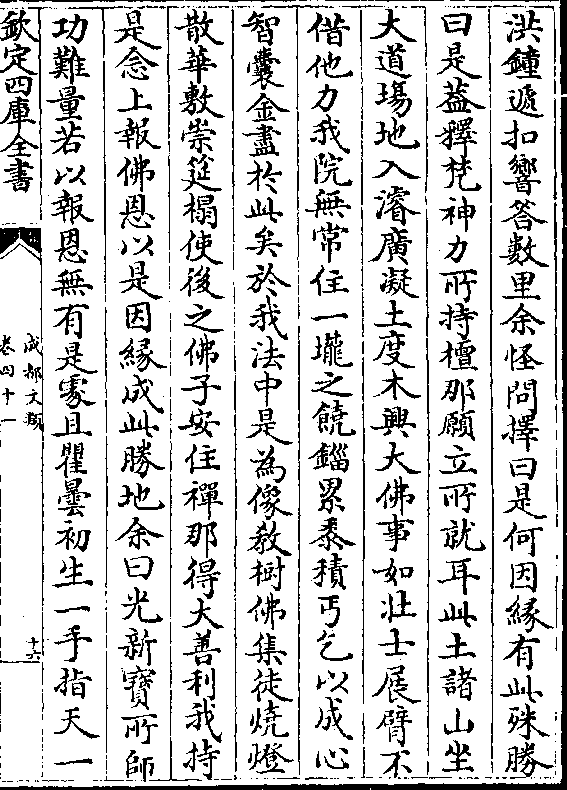 洪鐘遞扣響答數里余怪問擇曰是何因緣有此殊勝
曰是葢釋梵神力所持檀那願立所就耳此土諸山坐
大道場地入濬廣凝土度木興大佛事如壯士展臂不
借他力我院無常住一壠之饒錙累黍積丐乞以成心
智囊金盡於此矣於我法中是為像教樹佛集徒燒燈
散華敷崇筵榻使後之佛子安住禪那得大善利我持
是念上報佛恩以是因緣成此勝地余曰光新寶所師
功難量若以報恩無有是處且瞿曇初生一手指天一
欽定四庫全書
成都文類
卷四十一
十六